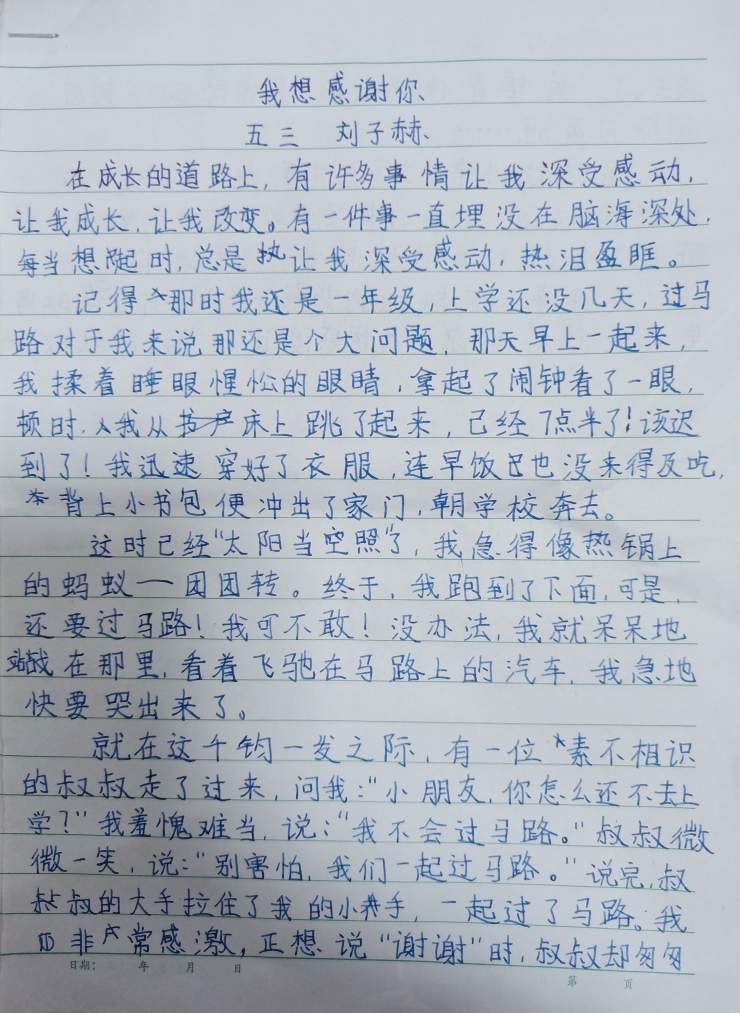 我想感谢你
五三 刘子赫
在成长的道路上，有许多事情让我深受感动，
让我成长，让我改变。有一件事一直埋没在脑海深处，
每当想起时，总是让我深受感动，热泪盈眶。
记得那时我还是一年级，上学还没几天，过马
路对于我来说那还是个大问题，那天早上一起来，
我揉着睡眼惺忪的眼睛，拿起了闹钟看了一眼，
顿时，我从床上跳了起来，已经7点半了！该迟
到了！我迅速穿好了衣服，连早饭也没来得及吃，
背上小书包便冲出了家门，朝学校奔去。
这时已经“太阳当空照”了，我急得像热锅上
的蚂蚁——团团转。终于，我跑到了下面，可是，
还要过马路！我可不敢！没办法，我就呆呆地
站在那里，看着飞驰在马路上的汽车，我急地
快要哭出来了。
就在这千钧一发之际，有一位素不相识
的叔叔走了过来，问我：“小朋友，你怎么还不去上
学？”我羞愧难当，说：“我不会过马路。”叔叔微
微一笑，说：“别害怕，我们一起过马路。”说完，叔
叔的大手拉住了我的小手，一起过了马路。我
非常感激，正想说“谢谢”时，叔叔却匆匆
日期： 年 月 日
第 页